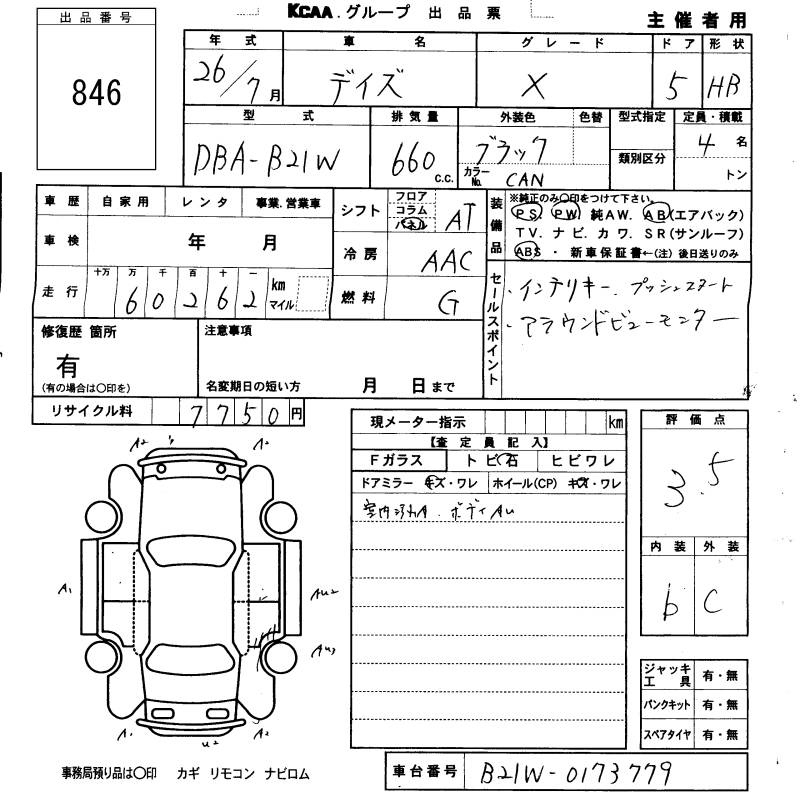 KCAA.グループ 出品票
主催者用
出品番号
846
年式 車名 グレード ドア 形状
26/7月 デイズ X 5 HB
型式 排気量 外装色 色替 型式指定 定員・積載
DBA-B21W 660 c.c. ブラック 4名
カラーNo. CAN 類別区分 トン
車歴 自家用 レンタ 事業.営業車
車検 年 月
走行 十万 万 千 百 十 一
60262 km マイル
シフト フロア コラム パネル AT
冷房 AAC
燃料 G
装備品
※純正のみ〇印をつけて下さい。
PS PW 純AW. AB(エアバック)
TV. ナビ. カワ. SR(サンルーフ)
ABS ・ 新車保証書←(注)後日送りのみ
セールスポイント
・インテリキー. プッシュスタート
・アラウンドビューモニター
修復歴 箇所
有
(有の場合は〇印を)
注意事項
名変期日の短い方 月 日まで
リサイクル料 7750円
現メーター指示 km
【査定員記入】
Fガラス トビ石 ヒビワレ
ドアミラー キズ・ワレ ホイール(CP) キズ・ワレ
室内 A. ボディAu
評価点
3.5
内装 外装
b C
ジャッキ工具 有・無
パンクキット 有・無
スペアタイヤ 有・無
A2 A2
A1 AU2
AU3
A1 U2 A2
事務局預り品は〇印 カギ リモコン ナビロム
車台番号 B21W-0173779